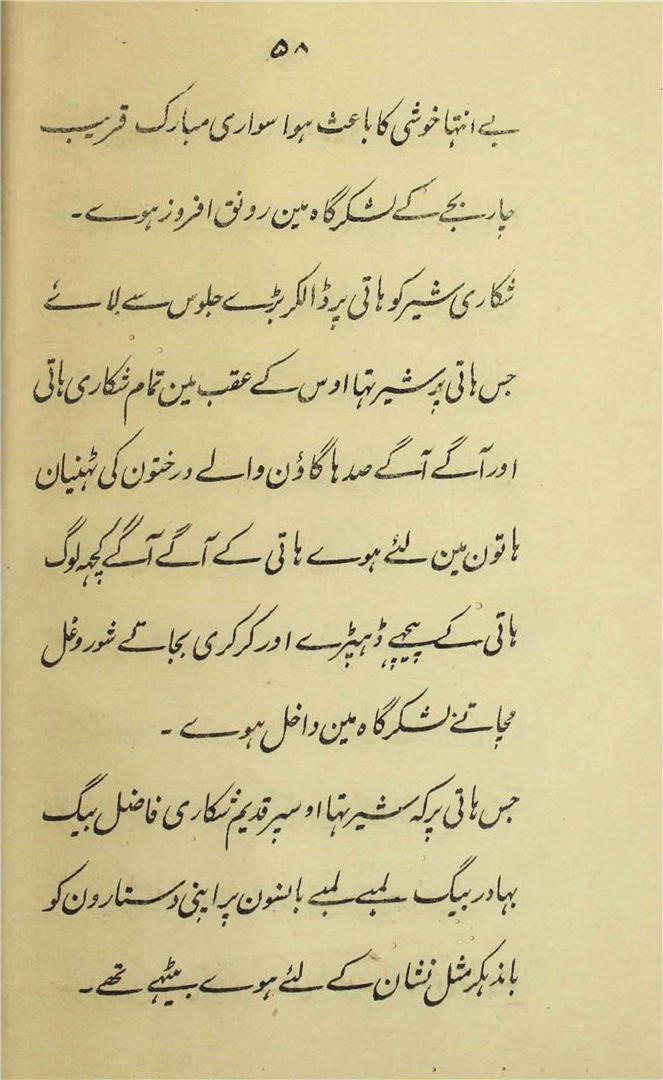 ۵۸
بے انتہا خوشی کا باعث ہوا سواری مبارک قریب
چار بجے کے لشکر گاہ مین رونق افروز ہوے۔
شکاری شیر کو ہاتی پر ڈالکر بڑے جلوس سے لائے
جس ہاتی پر شیر تہا اوس کے عقب مین تمام شکاری ہاتی
اور آگے آگے صدہا گاؤن والے درختون کی ٹہنیان
ہاتون مین لئے ہوے ہاتی کے آگے آگے کچہہ لوگ
ہاتی کے پیچہے ڈہپڑے اور کرکری بجاتے شور و غل
مچاتے لشکر گاہ مین داخل ہوے۔
جس ہاتی پر کہ شیر تہا اوسپر قدیم شکاری فاضل بیگ
بہادر بیگ لمبے لمبے بانسون پر اپنی دستارون کو
باندہکر مثل نشان کے لئے ہوے بیٹہے تھے۔